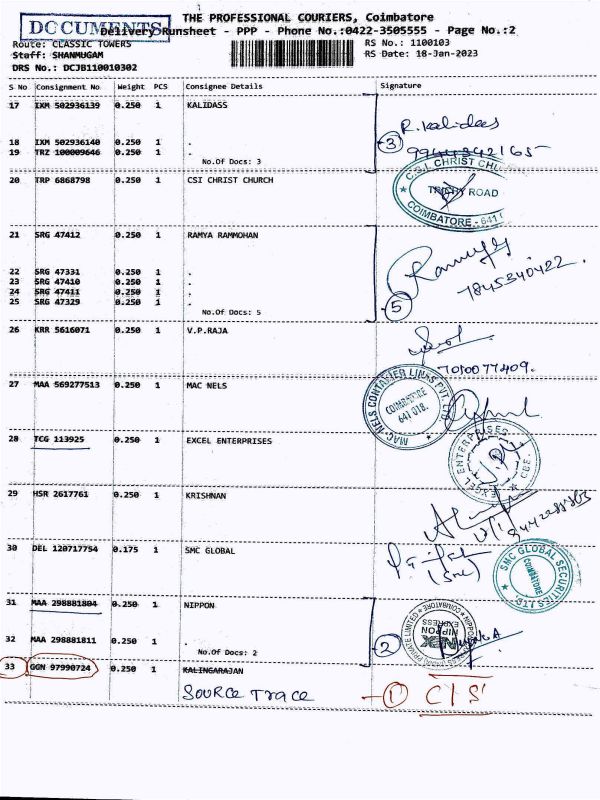 THE PROFESSIONAL COURIERS, Coimbatore
DOCUMENTS
Delivery Runsheet - PPP - Phone No.:0422-3505555 - Page No.:2
Route: CLASSIC TOWERS RS No.: 1100103
Staff: SHANMUGAM RS Date: 18-Jan-2023
DRS No.: DCJB110010302
S No Consignment No Weight PCS Consignee Details Signature
17 IXM 502936139 0.250 1 KALIDASS
R.Kalidass
18 IXM 502936140 0.250 1 .
3
19 TRZ 100009646 0.250 1 .
No.Of Docs: 3
20 TRP 6868798 0.250 1 CSI CHRIST CHURCH
C.S.I. CHRIST CHU
TRICHY ROAD
COIMBATORE - 641
21 SRG 47412 0.250 1 RAMYA RAMMOHAN
22 SRG 47331 0.250 1 .
23 SRG 47410 0.250 1 .
24 SRG 47411 0.250 1 .
25 SRG 47329 0.250 1 .
7845340422.
No.Of Docs: 5
5
26 KRR 5616071 0.250 1 V.P.RAJA
7010077409.
27 MAA 569277513 0.250 1 MAC NELS
MAC-NELS CONTAINER LINES PVT. LTD
COIMBATORE
641 018.
28 TCG 113925 0.250 1 EXCEL ENTERPRISES
EXCEL ENTERPRISES
CBE.
29 HSR 2617761 0.250 1 KRISHNAN
30 DEL 120717754 0.175 1 SMC GLOBAL
(SMC)
SMC GLOBAL SECURITIES LTD
COIMBATORE
31 MAA 298881804 0.250 1 NIPPON
NIPPON
EXPRESS
32 MAA 298881811 0.250 1 .
No.Of Docs: 2
2
33 GGN 97990724 0.250 1 KALINGARAJAN
SOURCE TRACE
1 C/S